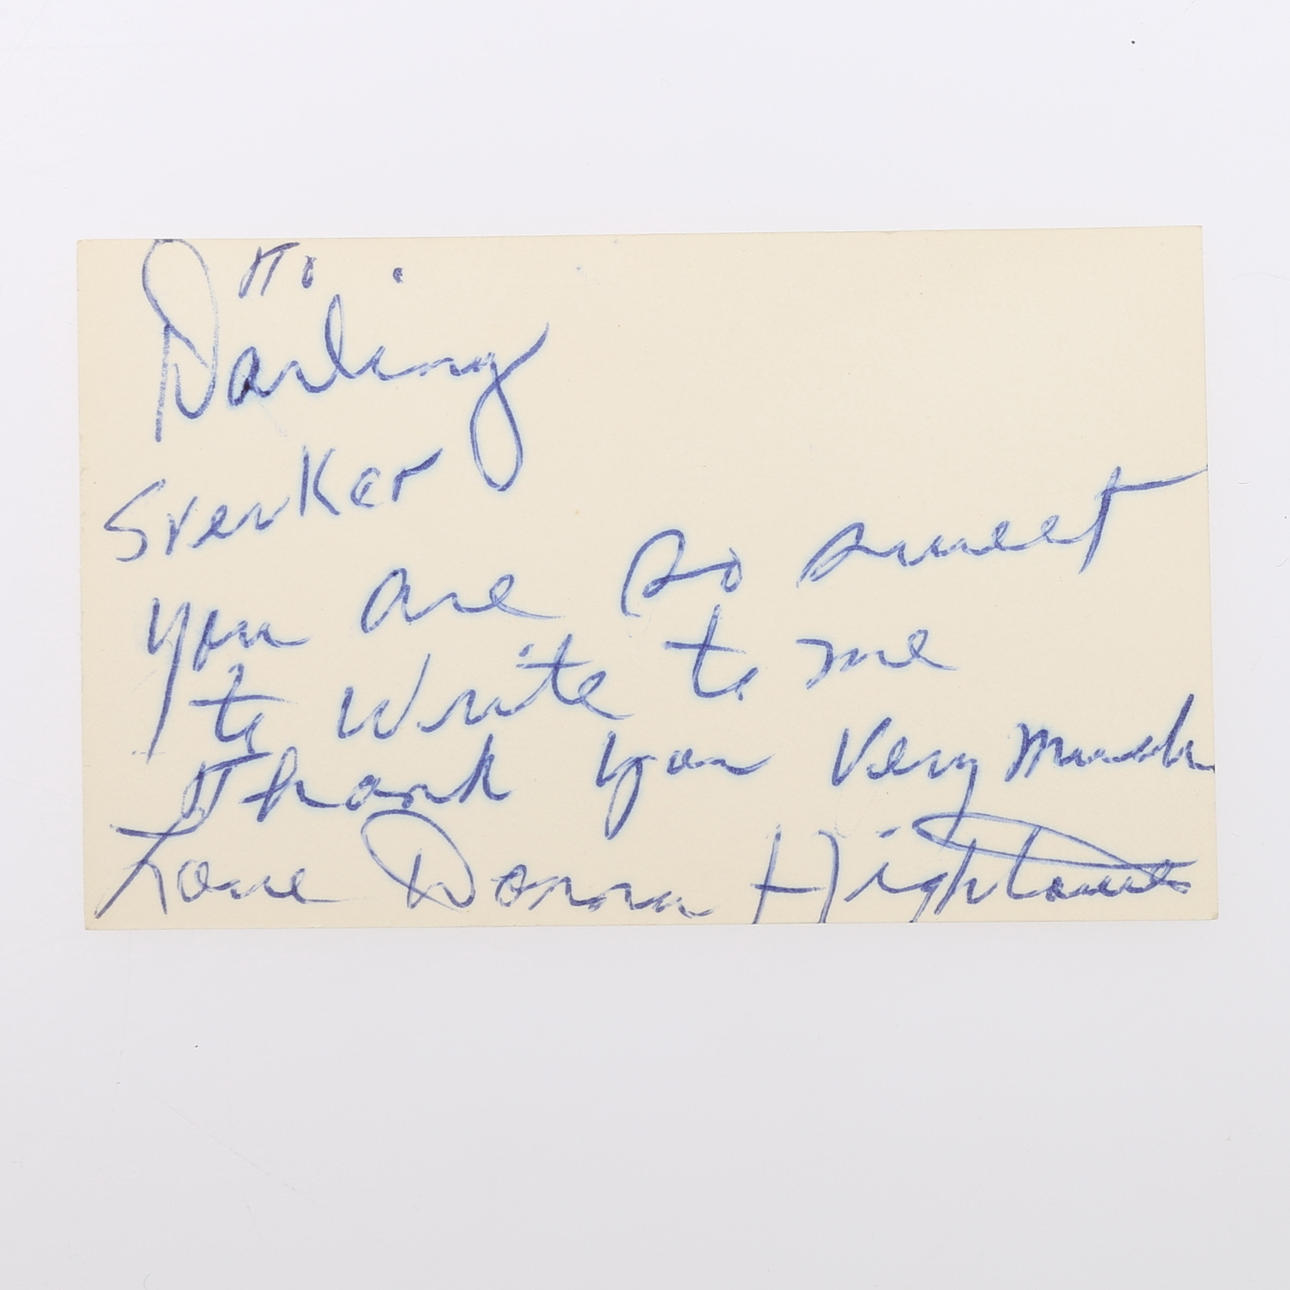 To
Darling
Svenker
you are so sweet
to write to me
Thank you Very Much
Love Donna Hightower